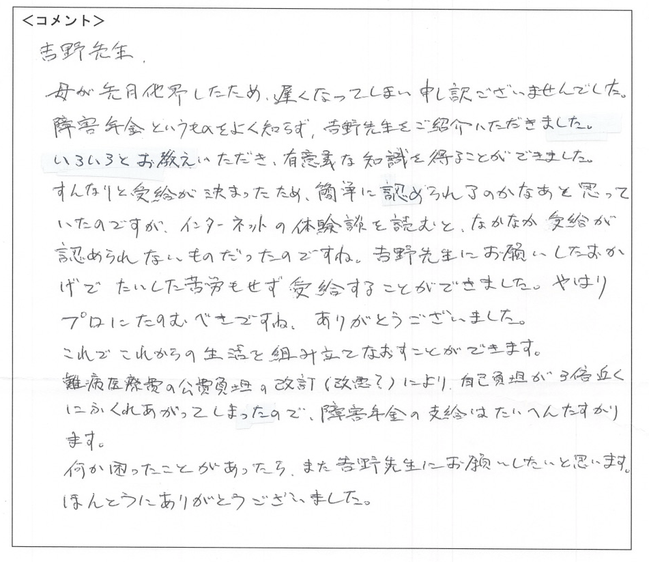 ＜コメント＞
吉野先生、
母が先月他界したため、遅くなってしまい申し訳ございませんでした。
障害年金というものをよく知らず、吉野先生をご紹介いただきました。
いろいろとお教えいただき、有意義な知識を得ることができました。
すんなりと受給が決まったため、簡単に認められるのかなあと思って
いたのですが、インターネットの体験談を読むと、なかなか受給が
認められないものだったのですね。吉野先生にお願いしたおか
げでたいした苦労もせず受給することができました。やはり
プロにたのむべきですね、ありがとうございました。
これでこれからの生活を組み立てなおすことができます。
難病医療費の公費負担の改訂（改悪？）により、自己負担が3倍近く
にふくれあがってしまったので、障害年金の支給はたいへんたすかり
ます。
何か困ったことがあったら、また吉野先生にお願いしたいと思います。
ほんとうにありがとうございました。